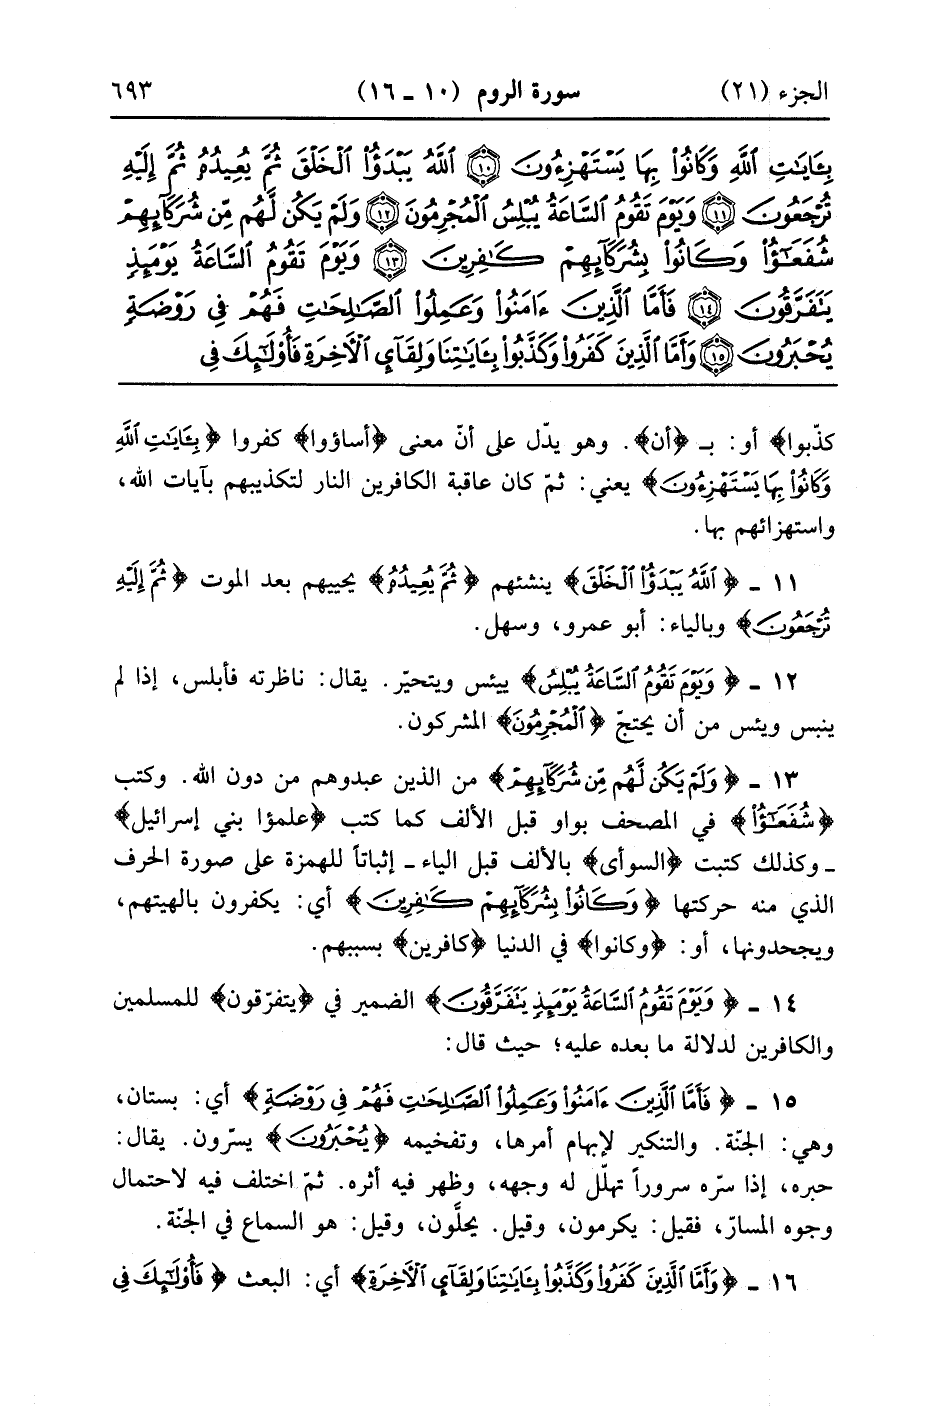 الجزء (٢١) سورة الروم (١٠ - ١٦) ٦٩٣
بِـَٔايَٰتِ ٱللَّهِ وَكَانُوا۟ بِهَا يَسْتَهْزِءُونَ ﴿١٠﴾ ٱللَّهُ يَبْدَؤُا۟ ٱلْخَلْقَ ثُمَّ يُعِيدُهُۥ ثُمَّ إِلَيْهِ
تُرْجَعُونَ ﴿١١﴾ وَيَوْمَ تَقُومُ ٱلسَّاعَةُ يُبْلِسُ ٱلْمُجْرِمُونَ ﴿١٢﴾ وَلَمْ يَكُن لَّهُم مِّن شُرَكَآئِهِمْ
شُفَعَٰٓؤُا۟ وَكَانُوا۟ بِشُرَكَآئِهِمْ كَٰفِرِينَ ﴿١٣﴾ وَيَوْمَ تَقُومُ ٱلسَّاعَةُ يَوْمَئِذٍ
يَتَفَرَّقُونَ ﴿١٤﴾ فَأَمَّا ٱلَّذِينَ ءَامَنُوا۟ وَعَمِلُوا۟ ٱلصَّٰلِحَٰتِ فَهُمْ فِى رَوْضَةٍ
يُحْبَرُونَ ﴿١٥﴾ وَأَمَّا ٱلَّذِينَ كَفَرُوا۟ وَكَذَّبُوا۟ بِـَٔايَٰتِنَا وَلِقَآئِ ٱلْـَٔاخِرَةِ فَأُو۟لَٰٓئِكَ فِى
كذّبوا﴾ أو: بـ ﴿أن﴾. وهو يدّل على أنّ معنى ﴿أساؤوا﴾ كفروا ﴿بِـَٔايَٰتِ ٱللَّهِ
وَكَانُوا۟ بِهَا يَسْتَهْزِءُونَ﴾ يعني: ثمّ كان عاقبة الكافرين النار لتكذيبهم بآيات الله،
واستهزائهم بها.
١١ - ﴿ٱللَّهُ يَبْدَؤُا۟ ٱلْخَلْقَ﴾ ينشئهم ﴿ثُمَّ يُعِيدُهُۥ﴾ يحييهم بعد الموت ﴿ثُمَّ إِلَيْهِ
تُرْجَعُونَ﴾ وبالياء: أبو عمرو، وسهل.
١٢ - ﴿وَيَوْمَ تَقُومُ ٱلسَّاعَةُ يُبْلِسُ﴾ ييئس ويتحيّر. يقال: ناظرته فأبلس، إذا لم
ينبس ويئس من أن يحتجّ ﴿ٱلْمُجْرِمُونَ﴾ المشركون.
١٣ - ﴿وَلَمْ يَكُن لَّهُم مِّن شُرَكَآئِهِمْ﴾ من الذين عبدوهم من دون الله. وكتب
﴿شُفَعَٰٓؤُا۟﴾ في المصحف بواو قبل الألف كما كتب ﴿علمؤا بني إسرائيل﴾
ـ وكذلك كتبت ﴿السوأى﴾ بالألف قبل الياء ـ إثباتاً للهمزة على صورة الحرف
الذي منه حركتها ﴿وَكَانُوا۟ بِشُرَكَآئِهِمْ كَٰفِرِينَ﴾ أي: يكفرون بالهيتهم،
ويجحدونها، أو: ﴿وكانوا﴾ في الدنيا ﴿كافرين﴾ بسببهم.
١٤ - ﴿وَيَوْمَ تَقُومُ ٱلسَّاعَةُ يَوْمَئِذٍ يَتَفَرَّقُونَ﴾ الضمير في ﴿يتفرّقون﴾ للمسلمين
والكافرين لدلالة ما بعده عليه؛ حيث قال:
١٥ - ﴿فَأَمَّا ٱلَّذِينَ ءَامَنُوا۟ وَعَمِلُوا۟ ٱلصَّٰلِحَٰتِ فَهُمْ فِى رَوْضَةٍ﴾ أي: بستان،
وهي: الجنّة. والتنكير لإبهام أمرها، وتفخيمه ﴿يُحْبَرُونَ﴾ يسرّون. يقال:
حبره، إذا سرّه سروراً تهلّل له وجهه، وظهر فيه أثره. ثمّ اختلف فيه لاحتمال
وجوه المسارّ، فقيل: يكرمون، وقيل. يحلَّون، وقيل: هو السماع في الجنّة.
١٦ - ﴿وَأَمَّا ٱلَّذِينَ كَفَرُوا۟ وَكَذَّبُوا۟ بِـَٔايَٰتِنَا وَلِقَآئِ ٱلْـَٔاخِرَةِ﴾ أي: البعث ﴿فَأُو۟لَٰٓئِكَ فِى